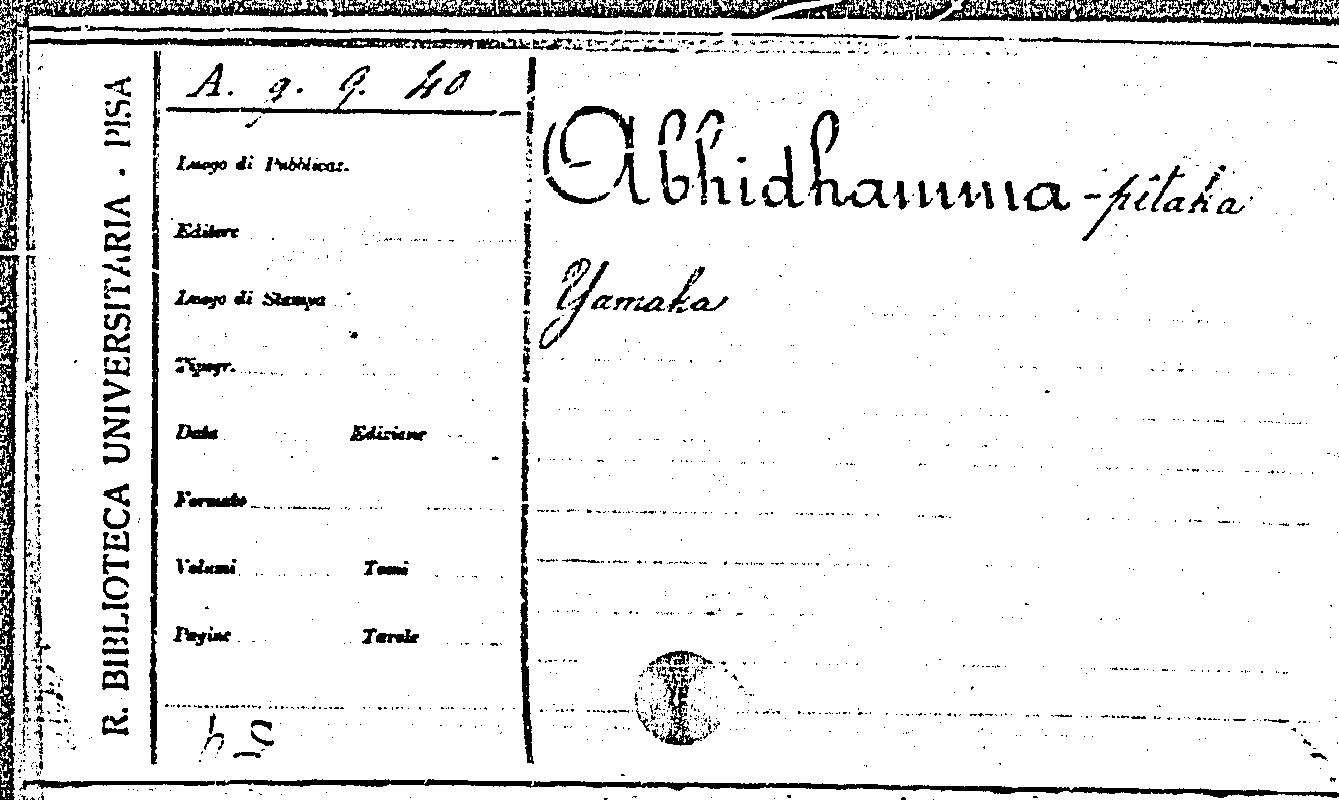 R. BIBLIOTECA UNIVERSITARIA - PISA
A. g. 9. 40
Luogo di Pubblicaz.
Editore
Luogo di Stampa
Tipogr.
Data Edizione
Formato
Volumi Tomi
Pagine Tavole
Abhidhamma-pitaka
Yamaka